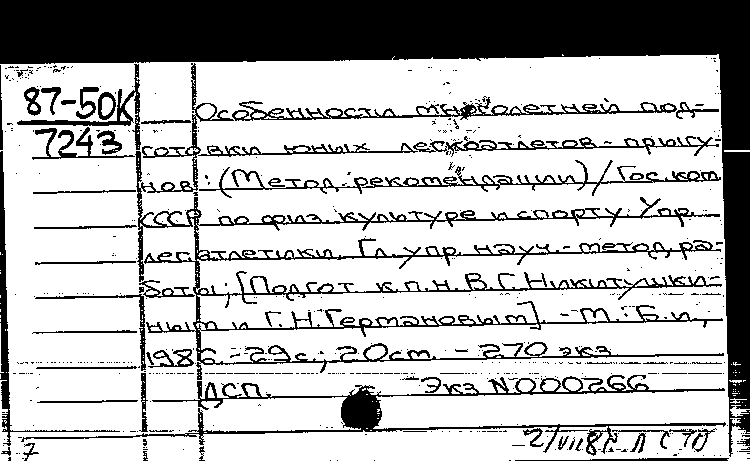 87-50К
7243
Особенности многолетней под-
готовки юных легкоатлетов-прыгу-
нов: (Метод. рекомендации) / Гос. ком
СССР по физ. культуре и спорту. Упр.
лег. атлетики. Гл. упр. науч.-метод. ра-
боты; [Подгот. к.п.н. В.Г. Никитушки-
ным и Г.Н. Германовым]. - М.: Б.и.,
1986. - 29 с.; 20 см. - 270 экз
ДСП. Экз N000266
7